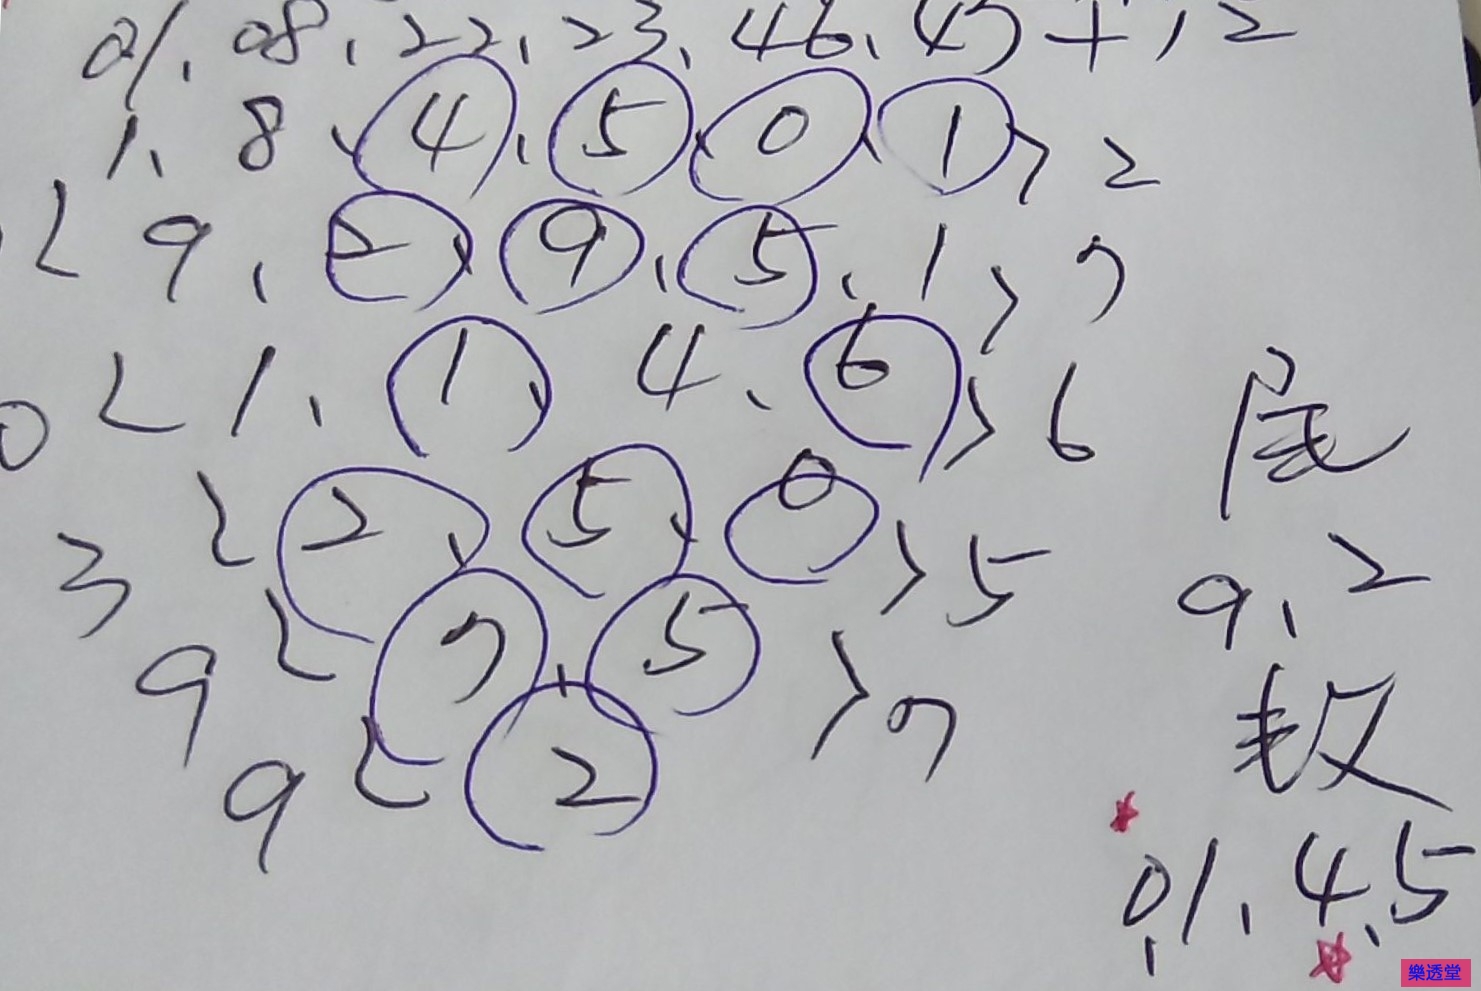 01、08、22、23、46、47+12
1、8、4、5、0、1>2
<9、2、9、5、1>7
0<1、1、4、6>6
3<2、5、0>5
9<7、5>7
9<2
尾
9、2
段
01、4、5
樂透堂